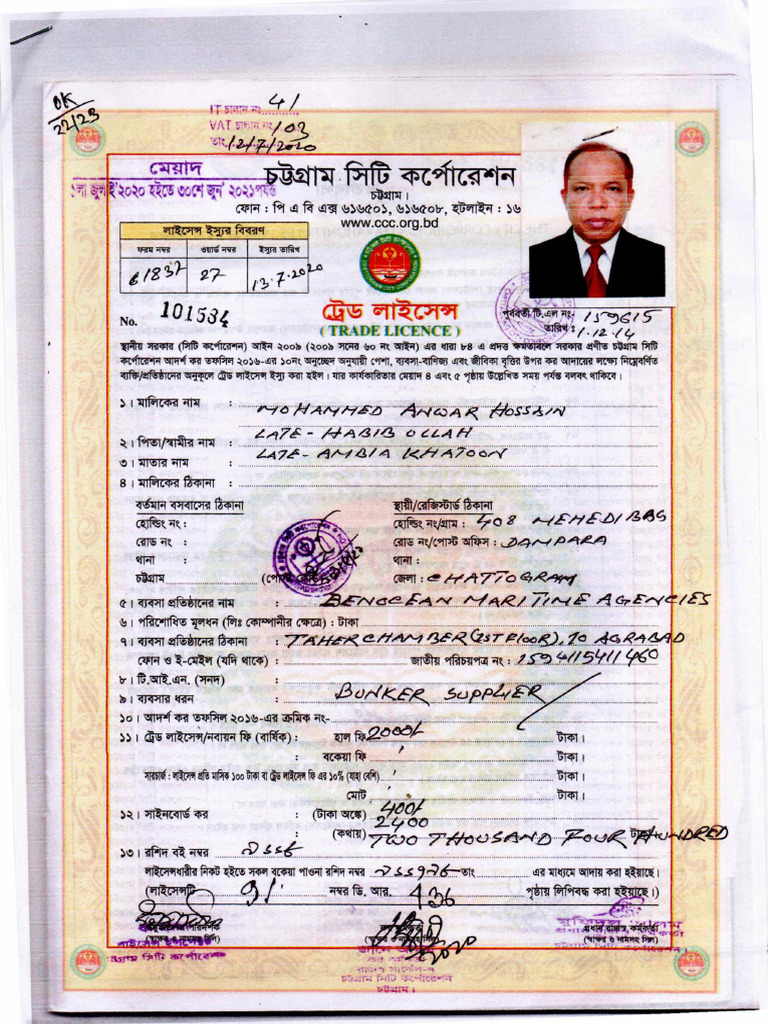 OK
22/23
IT চালান নং 41
VAT চালান নং 103
তাং 12/7/2020
মেয়াদ
১লা জুলাই'২০২০ হইতে ৩০শে জুন' ২০২১পর্যন্ত
চট্টগ্রাম সিটি কর্পোরেশন
চট্টগ্রাম।
ফোন : পি এ বি এক্স ৬১৬৫০১, ৬১৬৫০৮, হটলাইন : ১৬
www.ccc.org.bd
লাইসেন্স ইস্যুর বিবরণ
ফরম নম্বর ওয়ার্ড নম্বর ইস্যুর তারিখ
61837 27 13.7.2020
No. 101534
ট্রেড লাইসেন্স
( TRADE LICENCE )
পূর্ববর্তী টি.এল নং- 159615
তারিখ : 1.12.14
স্থানীয় সরকার (সিটি কর্পোরেশন) আইন ২০০৯ (২০০৯ সনের ৬০ নং আইন) এর ধারা ৮৪ এ প্রদত্ত ক্ষমতাবলে সরকার প্রণীত চট্টগ্রাম সিটি
কর্পোরেশন আদর্শ কর তফসিল ২০১৬-এর ১০নং অনুচ্ছেদ অনুযায়ী পেশা, ব্যবসা-বাণিজ্য এবং জীবিকা বৃত্তির উপর কর আদায়ের লক্ষ্যে নিম্নেবর্ণিত
ব্যক্তি/প্রতিষ্ঠানের অনুকূলে ট্রেড লাইসেন্স ইস্যু করা হইল। যার কার্যকারিতার মেয়াদ ৪ এবং ৫ পৃষ্ঠায় উল্লেখিত সময় পর্যন্ত বলবৎ থাকিবে।
১। মালিকের নাম : MOHAMMED ANWAR HOSSAIN
২। পিতা/স্বামীর নাম : LATE- HABIB ULLAH
৩। মাতার নাম : LATE- AMBIA KHATOON
৪। মালিকের ঠিকানা :
বর্তমান বসবাসের ঠিকানা স্থায়ী/রেজিস্টার্ড ঠিকানা
হোল্ডিং নং : হোল্ডিং নং/গ্রাম : 408 MEHEDIBAG
রোড নং : রোড নং/পোস্ট অফিস : DAMPARA
থানা : থানা :
চট্টগ্রাম (পোস্ট জেলা : CHATTOGRAM
৫। ব্যবসা প্রতিষ্ঠানের নাম : BENOCEAN MARITIME AGENCIES
৬। পরিশোধিত মূলধন (লিঃ কোম্পানীর ক্ষেত্রে) : টাকা
৭। ব্যবসা প্রতিষ্ঠানের ঠিকানা : TAHER CHAMBER (1ST FLOOR), 10 AGRABAD
ফোন ও ই-মেইল (যদি থাকে) : জাতীয় পরিচয়পত্র নং : 1594115411460
৮। টি.আই.এন. (সনদ) :
৯। ব্যবসার ধরন : BUNKER SUPPLIER
১০। আদর্শ কর তফসিল ২০১৬-এর ক্রমিক নং-
১১। ট্রেড লাইসেন্স/নবায়ন ফি (বার্ষিক) : হাল ফি 2000/- টাকা।
: বকেয়া ফি টাকা।
সারচার্জ : লাইসেন্স প্রতি মাসিক ১০০ টাকা বা ট্রেড লাইসেন্স ফি এর ১০% (যাহা বেশি) টাকা।
মোট টাকা।
১২। সাইনবোর্ড কর : (টাকা অঙ্কে) 400/-
2400
: (কথায়) TWO THOUSAND FOUR HUNDRED টাকা
১৩। রশিদ বই নম্বর :
লাইসেন্সধারীর নিকট হইতে সকল বকেয়া পাওনা রশিদ নম্বর তাং এর মাধ্যমে আদায় করা হইয়াছে।
(লাইসেন্সটি নম্বর ডি. আর. 436 পৃষ্ঠায় লিপিবদ্ধ করা হইয়াছে।)
(স্বাক্ষর ও নামসহ সিল) (স্বাক্ষর ও নামসহ সিল) প্রধান রাজস্ব কর্মকর্তা
(স্বাক্ষর ও নামসহ সিল)
চট্টগ্রাম সিটি কর্পোরেশন
চট্টগ্রাম সিটি কর্পোরেশন
চট্টগ্রাম।